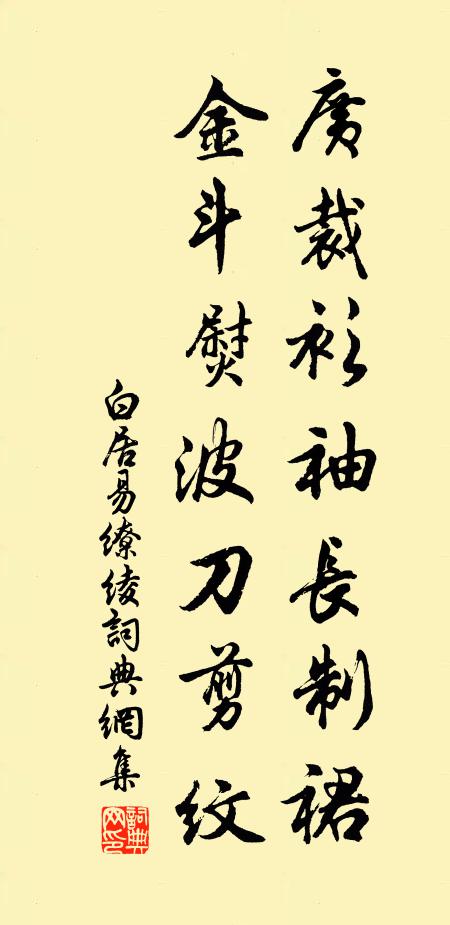 廣裁衫袖長制裙
金斗熨波刀剪紋
白居易繚綾詞典網集
詞典網印